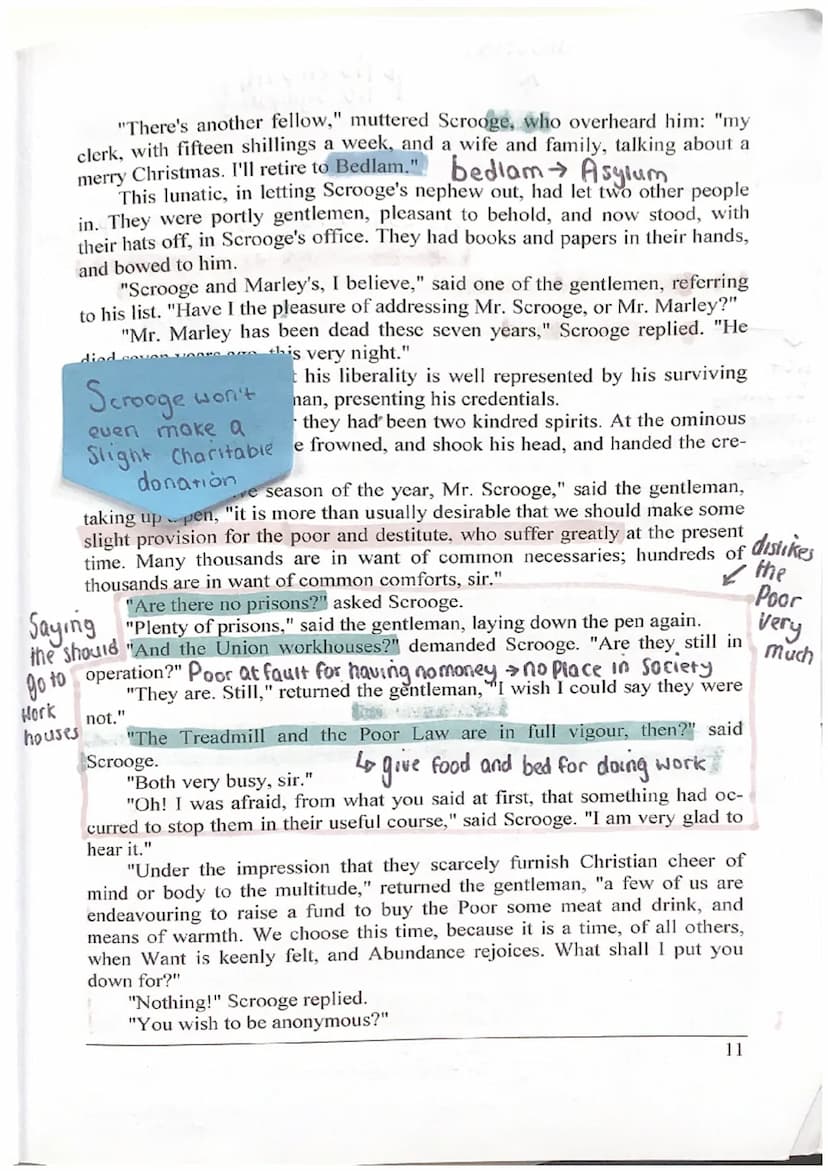 "There's another fellow," muttered Scrooge, who overheard him: "my
clerk, with fifteen shillings a week, and a wife and family, talking about a
merry Christmas. I'll retire to Bedlam."
bedlam → Asylum
This lunatic, in letting Scrooge's nephew out, had let two other people
in. They were portly gentlemen, pleasant to behold, and now stood, with
their hats off, in Scrooge's office. They had books and papers in their hands,
and bowed to him.
"Scrooge and Marley's, I believe," said one of the gentlemen, referring
to his list. "Have I the pleasure of addressing Mr. Scrooge, or Mr. Marley?"
"Mr. Marley has been dead these seven years," Scrooge replied. "He
died seven years ago, this very night."
his liberality is well represented by his surviving
presenting his credentials.
they had been two kindred spirits. At the ominous
frowned, and shook his head, and handed the cre-
Scrooge won't
even make a
Slight Charitable
donation
season of the year, Mr. Scrooge," said the gentleman,
taking up pen, "it is more than usually desirable that we should make some
slight provision for the poor and destitute, who suffer greatly at the present
time. Many thousands are in want of common necessaries; hundreds of
thousands are in want of common comforts, sir."
dislikes
↙ the
Poor
very
much
"Are there no prisons?" asked Scrooge.
"Plenty of prisons," said the gentleman, laying down the pen again.
"And the Union workhouses?" demanded Scrooge. "Are they still in
operation?"
Poor at fault for having no money → no place in society
Saying
the should
go to
work
houses
"They are. Still," returned the gentleman, "I wish I could say they were
not."
"The Treadmill and the Poor Law are in full vigour, then?" said
Scrooge.
↳ give food and bed for doing work
"Both very busy, sir."
"Oh! I was afraid, from what you said at first, that something had oc-
curred to stop them in their useful course," said Scrooge. "I am very glad to
hear it."
"Under the impression that they scarcely furnish Christian cheer of
mind or body to the multitude," returned the gentleman, "a few of us are
endeavouring to raise a fund to buy the Poor some meat and drink, and
means of warmth. We choose this time, because it is a time, of all others,
when Want is keenly felt, and Abundance rejoices. What shall I put you
down for?"
"Nothing!" Scrooge replied.
"You wish to be anonymous?"
11